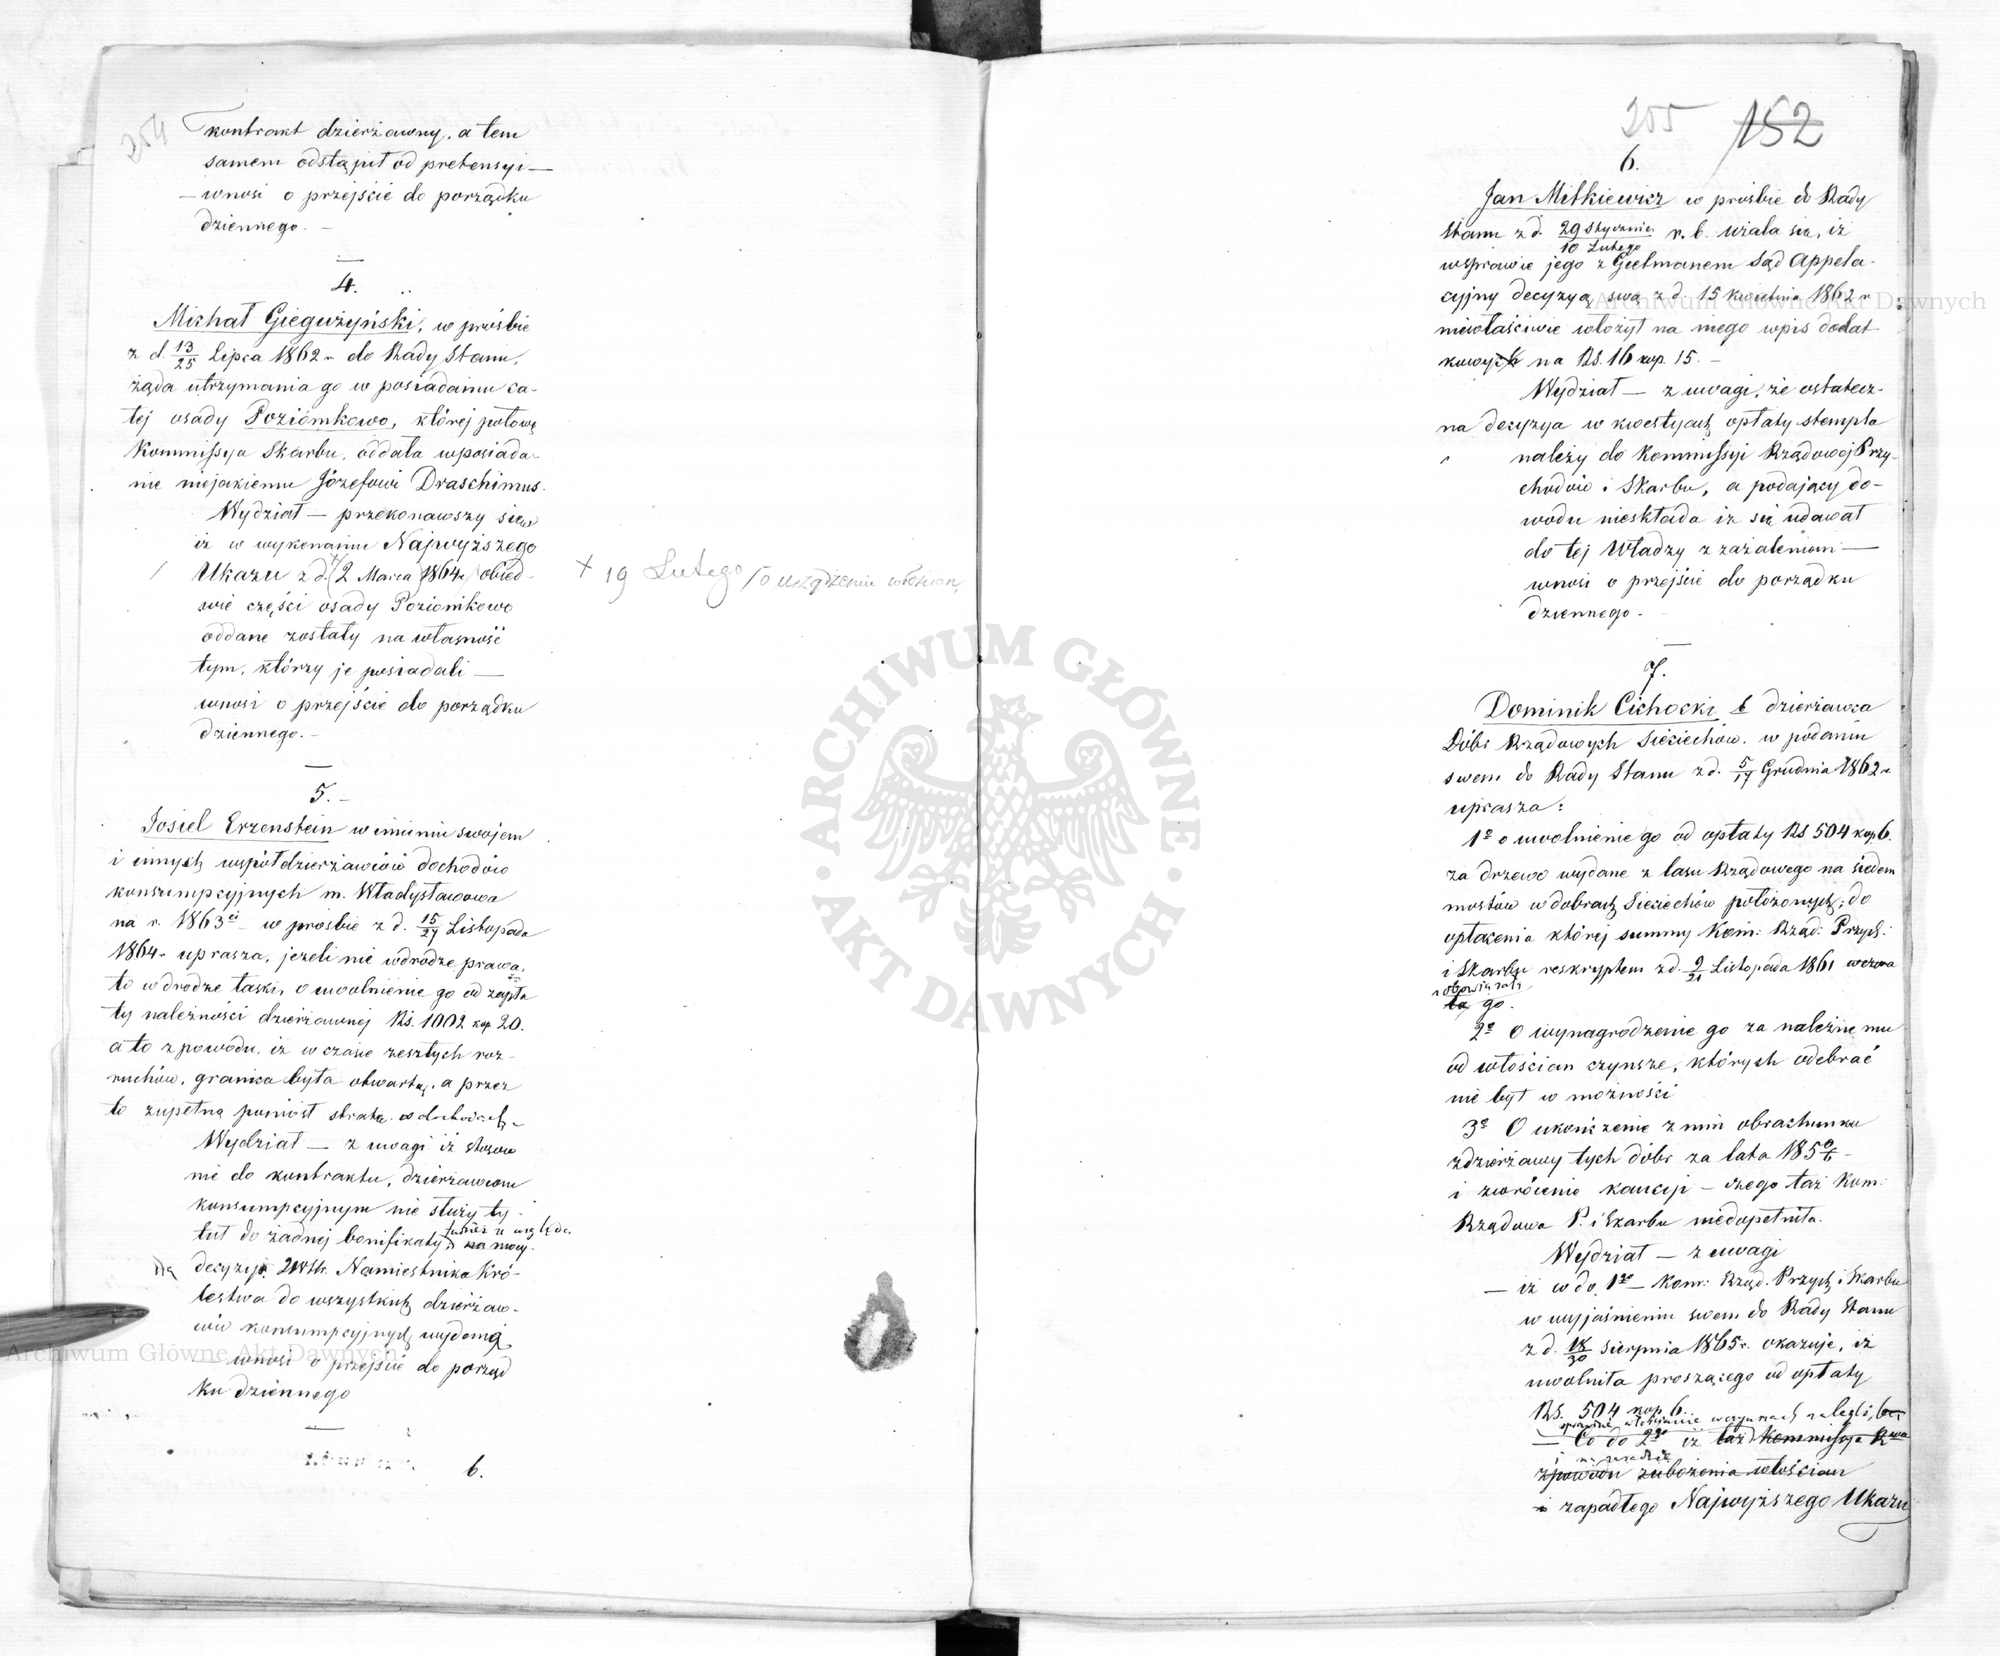 254
kontrakt dzierżawny, a tem
samem odstąpił od pretensyi —
— wnosi o przejście do porządku
dziennego. —
4.
Michał Giegużyński, w prośbie
z d. 13/25 Lipca 1862 r. do Rady Stanu,
żąda utrzymania go w posiadaniu ca-
łej osady Poziómkowo, której połowę
Kommissya Skarbu, oddała w posiada-
nie niejakiemu Józefowi Draschimus.
Wydział — przekonawszy się
iż w wykonaniu Najwyższego
Ukazu z d. 2 Marca 1864 r. obied-
wie części osady Poziomkowo
oddane zostały na własność
tym, którzy je posiadali —
wnosi o przejście do porządku
dziennego. —
+ 19 Lutego / o urządzeniu włościan
5. —
Josiel Erzenstein w imieniu swojem
i innych współdzierżawców dochodów
konsumpcyjnych m. Władysławowa
na r. 1863 w prośbie z d. 15/27 Listopada
1864 r. uprasza, jeżeli nie wdrodze prawa,
to w drodze łaski, o uwolnienie go od zapła
ty należności dzierżawnej Rs. 1002 kop 20.
a to z powodu, iż w czasie zeszłych roz-
ruchów, granica była otwartą, a przez
to zupełną poniósł stratę w dochodach —
Wydział — z uwagi iż stosow
nie do kontraktu, dzierżawcom
konsumpcyjnym nie służy ty-
tuł do żadnej bonifikaty na mocy
decyzyi Namiestnika Kró-
lestwa do wszystkich dzierżaw-
ców konsumpcyjnych wydaną
— wnosi o przejście do porząd
ku dziennego
6.
255 152
6.
Jan Mitkiewicz w prośbie do Rady
Stanu z d. 29 Stycznia/10 Lutego r. b. użala się, iż
wsprawie jego z Gietmanem Sąd Appela-
cyjny decyzyą swą z d. 15 Kwietnia 1862 r
niewłaściwie włożył na niego wpis dodat-
kowy na Rs. 16 kop. 15. —
Wydział — z uwagi, że ostatecz-
na decyzya w kwestyach opłaty stempla
należy do Kommissyi Rządowej Przy-
chodów i Skarbu, a podający do-
wodu nieskłada iż się udawał
do tej Władzy z zażaleniem —
wnosi o przejście do porządku
dziennego. —
7.
Dominik Cichocki b dzierżawca
Dóbr Rządowych Sieciechów, w podaniu
swem do Rady Stanu z d. 5/17 Grudnia 1862 r.
uprasza:
1º o uwolnienie go od opłaty Rs 504 kop. 6.
za drzewo wydane z lasu Rządowego na siedem
mostów w dobrach Sieciechów położonych, do
opłacenia której summy Kom: Rząd: Przych:
i Skarbu reskryptem z d. 9/21 Listopada 1861 wezwa
ła go.
obowiązała
2º O wynagrodzenie go za należne mu
od włościan czynsze, których odebrać
nie był w możności
3º O ukończenie z nim obrachunku
zdzierżawy tych dóbr za lata 185 0/6 —
i zwrócenie kaucyi — czego taż Kom:
Rządowa P. i Skarbu niedopełniła.
Wydział — z uwagi
— iż w do 1go — Kom: Rząd. Przych i Skarbu
w wyjaśnieniu swem do Rady Stanu
z d. 18/30 Sierpnia 1865 r. okazuje, iż
uwolniła proszącego od opłaty
Rs. 504 kop. 6.
— Co do 2go iż taż Kommissya Rwa
włościanie w czynszach zalegli,
z powodu zubożenia włościan
i na zasadzie
zapadłego Najwyższego Ukazu
Archiwum Główne Akt Dawnych
Archiwum Główne Akt Dawnych
ARCHIWUM GŁÓWNE
AKT DAWNYCH